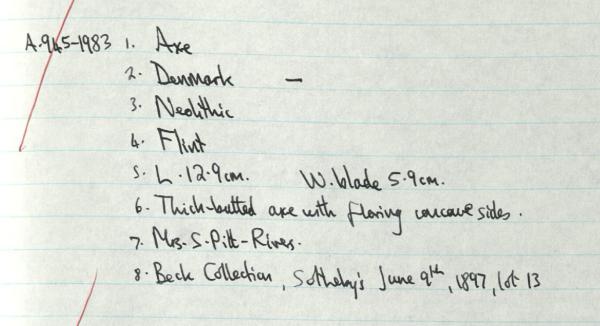 A.945-1983 1. Axe
2. Denmark —
3. Neolithic
4. Flint
5. L. 12.9cm. W. blade 5.9cm.
6. Thick-butted axe with flaring concave sides.
7. Mrs. S. Pitt-Rivers.
8. Beck Collection, Sotheby's June 9th, 1897, lot 13